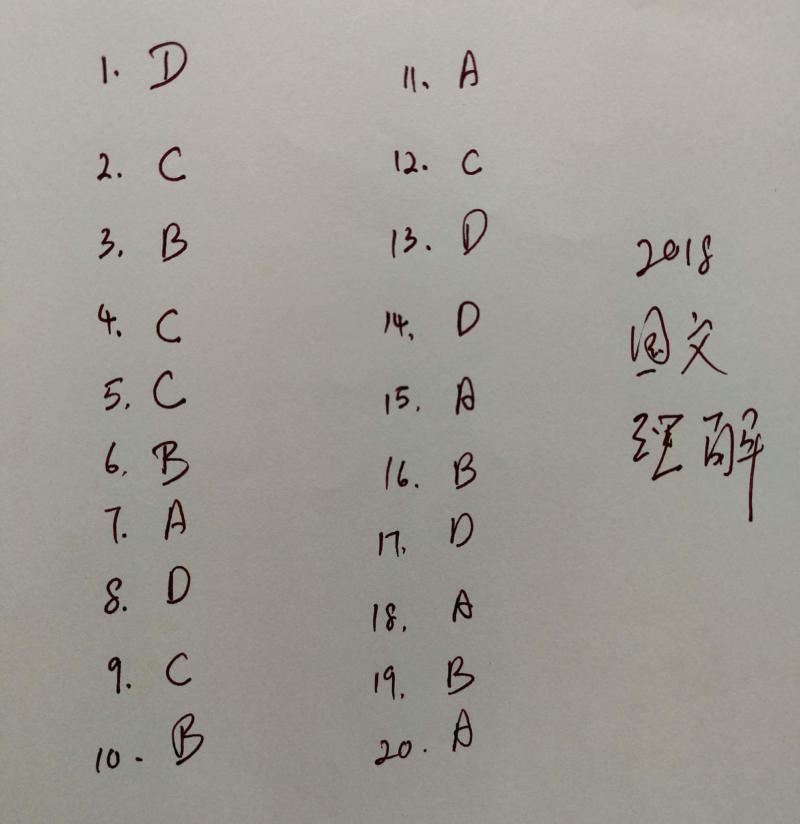 1. D
2. C
3. B
4. C
5. C
6. B
7. A
8. D
9. C
10. B
11. A
12. C
13. D
14. D
15. A
16. B
17. D
18. A
19. B
20. A
2018
图文
理解